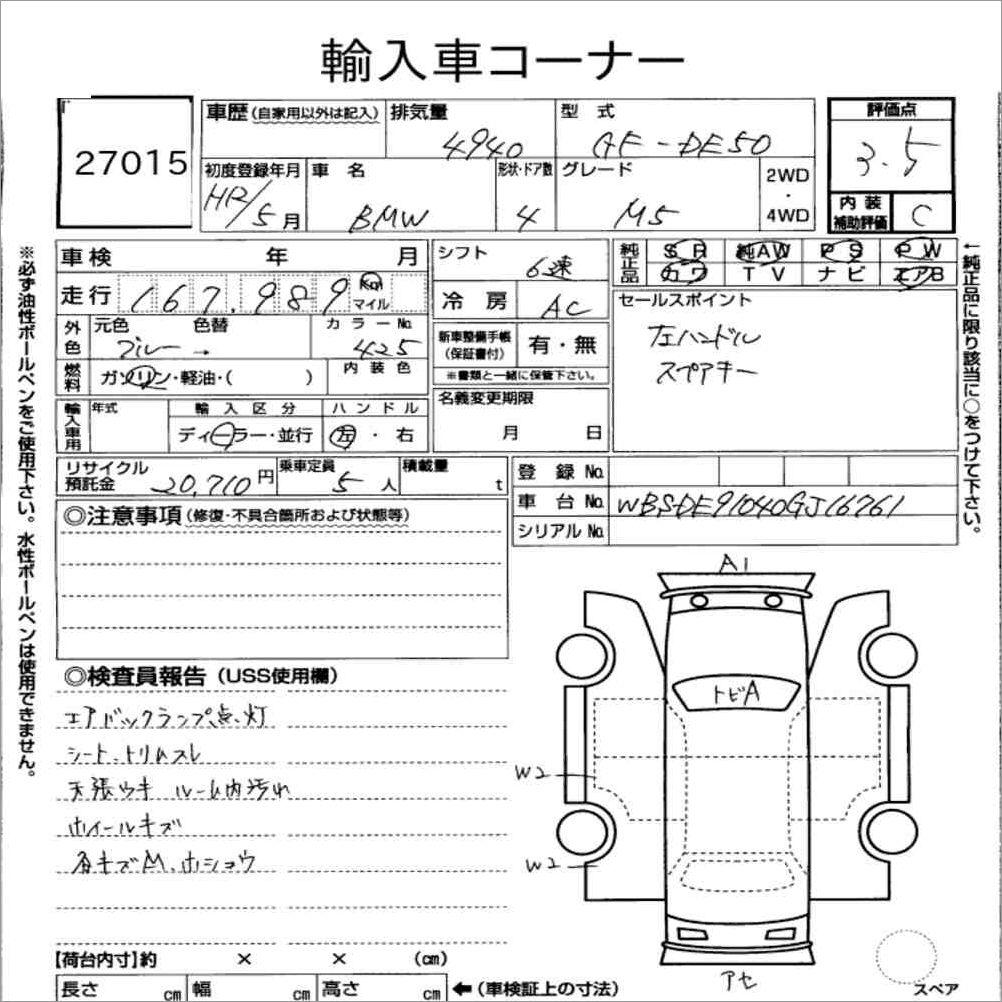 輸入車コーナー
27015
車歴(自家用以外は記入) 排気量 4940 型式 GF-DE50 評価点 3.5
初度登録年月 /5月 車名 BMW 形状・ドア数 4 グレード M5 2WD・4WD 内装補助評価 C
車検 年 月 シフト 6速 純正品 SR 純AW PS PW
走行 167,989 Km マイル 冷房 AC カワ TV ナビ エアB
外色 元色 ブルー 色替 → カラーNo. 425 新車整備手帳(保証書付) 有・無 セールスポイント
※書類と一緒に保管下さい。
左ハンドル
スペアキー
燃料 ガソリン・軽油・( ) 内装色 名義変更期限 月 日
輸入車用 年式 輸入区分 ディーラー・並行 ハンドル 左・右
リサイクル預託金 20,710円 乗車定員 5人 積載量 t 登録No.
車台No. WBSDE91040GJ16761
シリアルNo.
◎注意事項(修復・不具合箇所および状態等)
◎検査員報告(USS使用欄)
エアバックランプ点灯
シート、トリムスレ
天張ウキ ルーム内汚れ
ホイールキズ
各キズM、ホショウ
A1
トビA
W2
W2
アセ
スペア
【荷台内寸】約 × × (cm)
長さ cm 幅 cm 高さ cm ←(車検証上の寸法)
※必ず油性ボールペンをご使用下さい。水性ボールペンは使用できません。
←純正品に限り該当に○をつけて下さい。